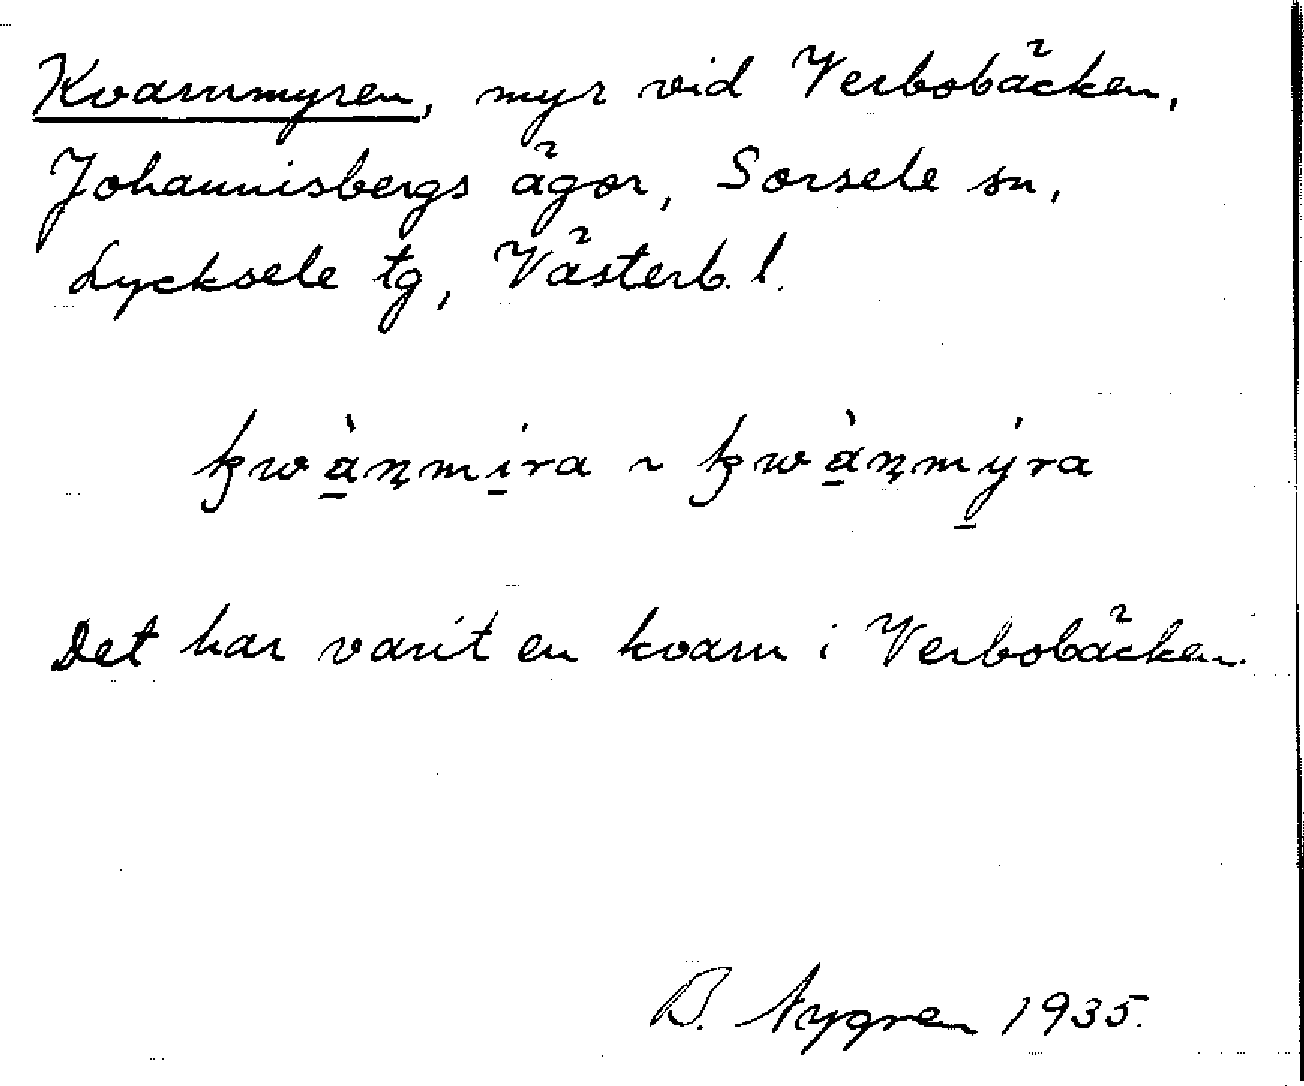 Kvarnmyren, myr vid Verbobäcken,
Johannisbergs ägor, Sorsele sn,
Lycksele tg, Västerb. l.
kwà̱ṇmí̱ra ~ kwà̱ṇmý̱ra
Det har varit en kvarn i Verbobäcken.
B. Nygren 1935.